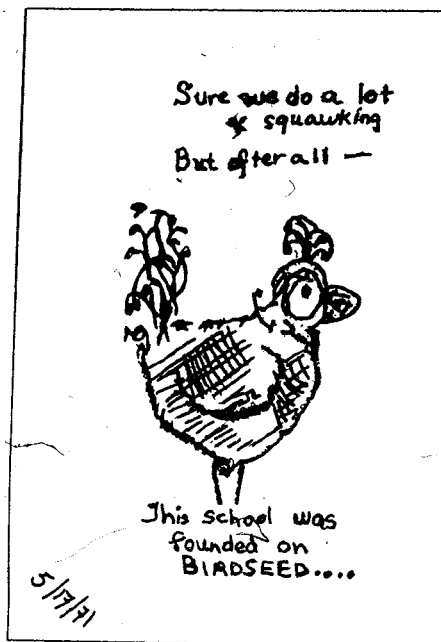 Sure we do a lot
squawking
But after all —
This school was
founded on
BIRDSEED....
5/17/71